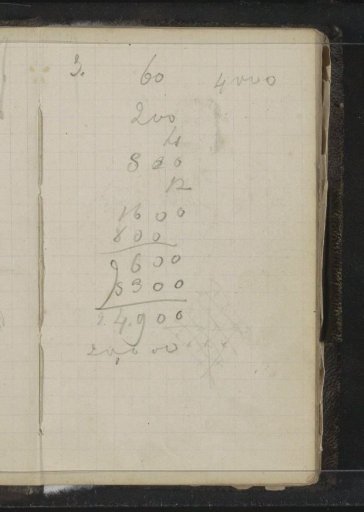 3. 60 4000
200
4
800
12
1600
800
9600
24.900
20,000